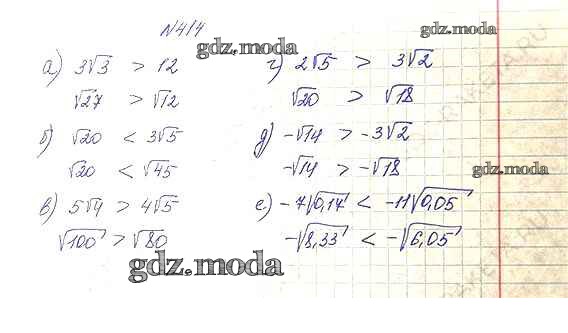 N414
gdz.moda
gdz.moda
а) 3√3 > 12
√27 > √12
б) √20 < 3√5
√20 < √45
в) 5√4 > 4√5
√100 > √80
г) 2√5 > 3√2
√20 > √18
д) -√14 > -3√2
-√14 > -√18
gdz.moda
е) -7√0,17 < -11√0,05
-√8,33 < -√6,05
gdz.moda